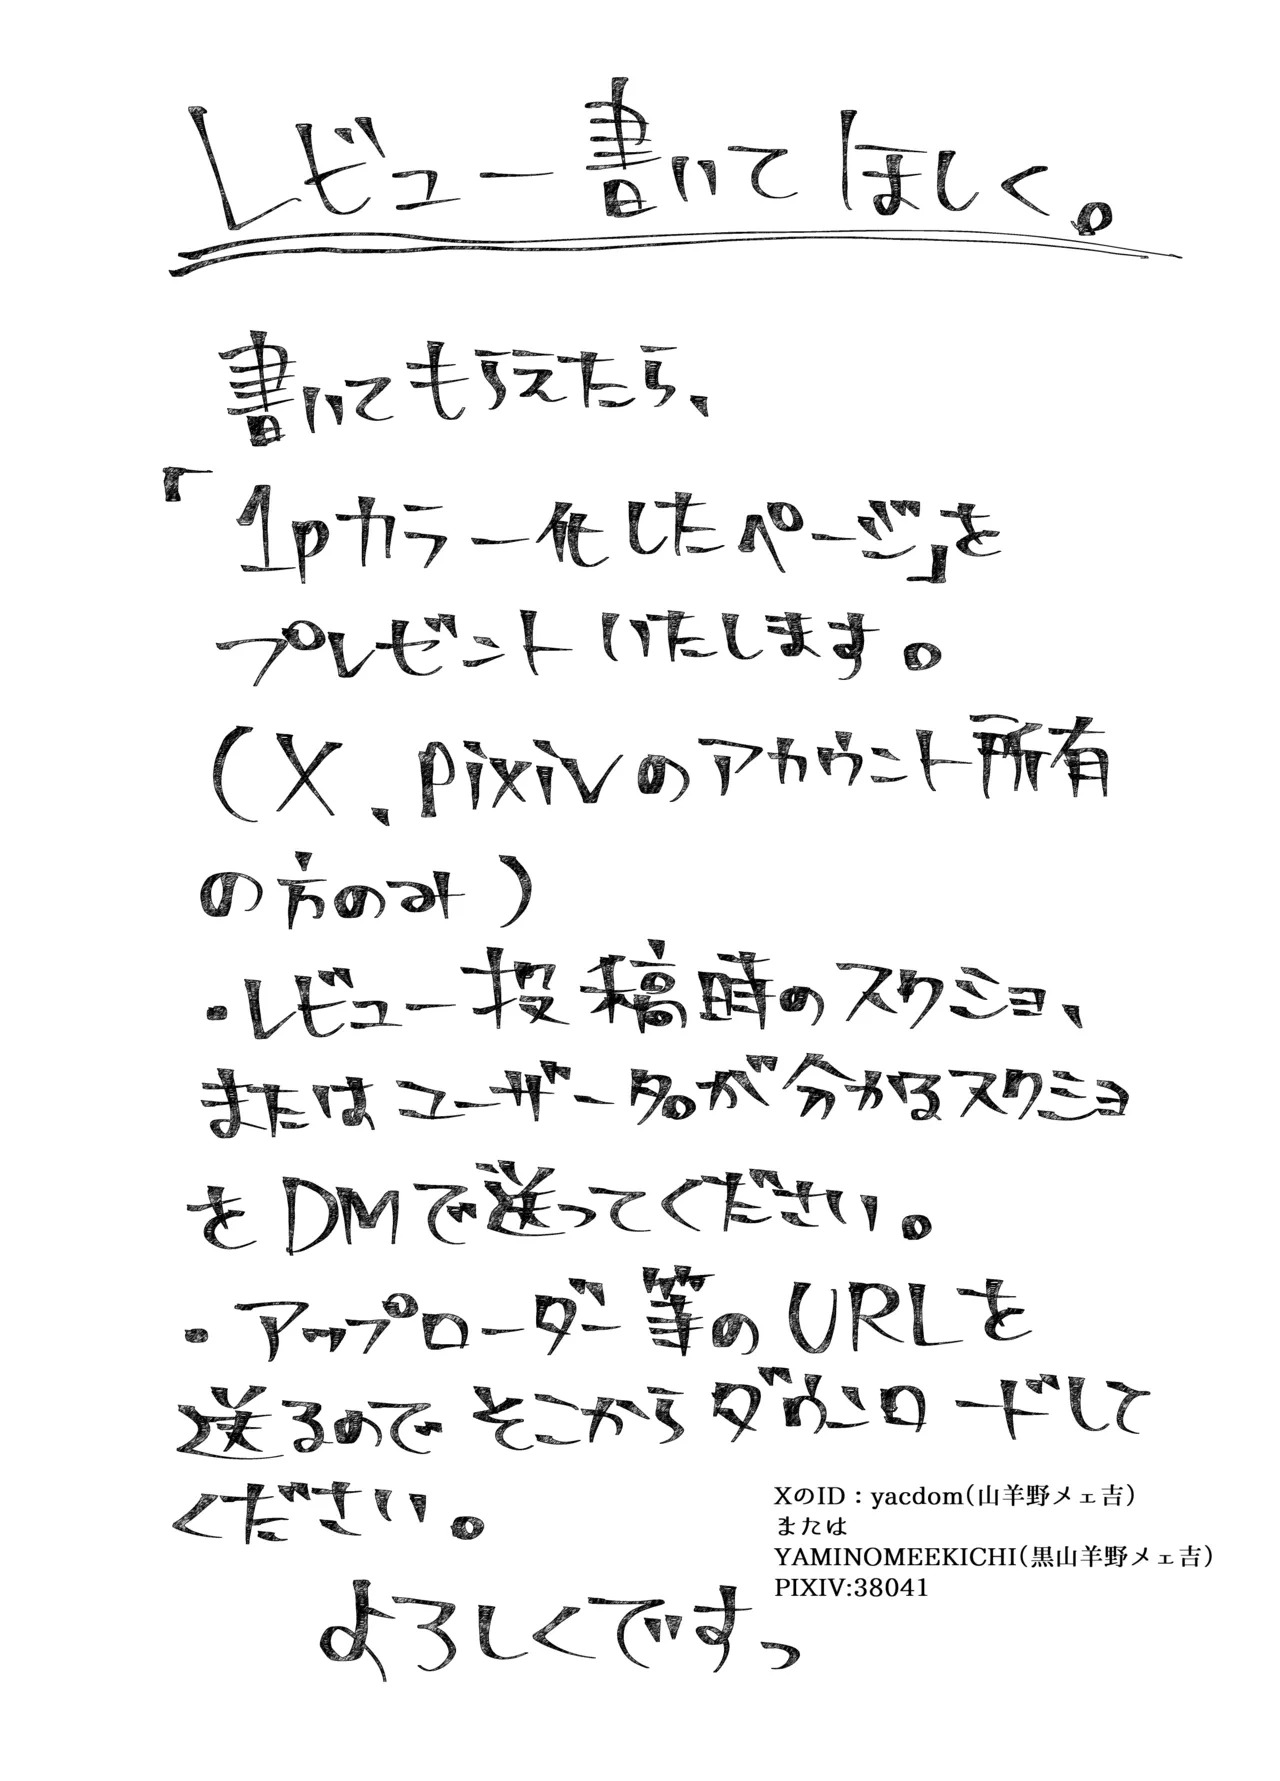 レビュー書いてほしく。
書いてもらえたら、
「1pカラー化したページ」を
プレゼントいたします。
(X、pixivのアカウント所有
の方のみ)
・レビュー投稿時のスクショ、
またはユーザー名が分かるスクショ
をDMで送ってください。
・アップローダー等のURLを
送るのでそこからダウンロードして
ください。
よろしくですっ
XのID：yacdom(山羊野メェ吉)
または
YAMINOMEEKICHI(黒山羊野メェ吉)
PIXIV:38041